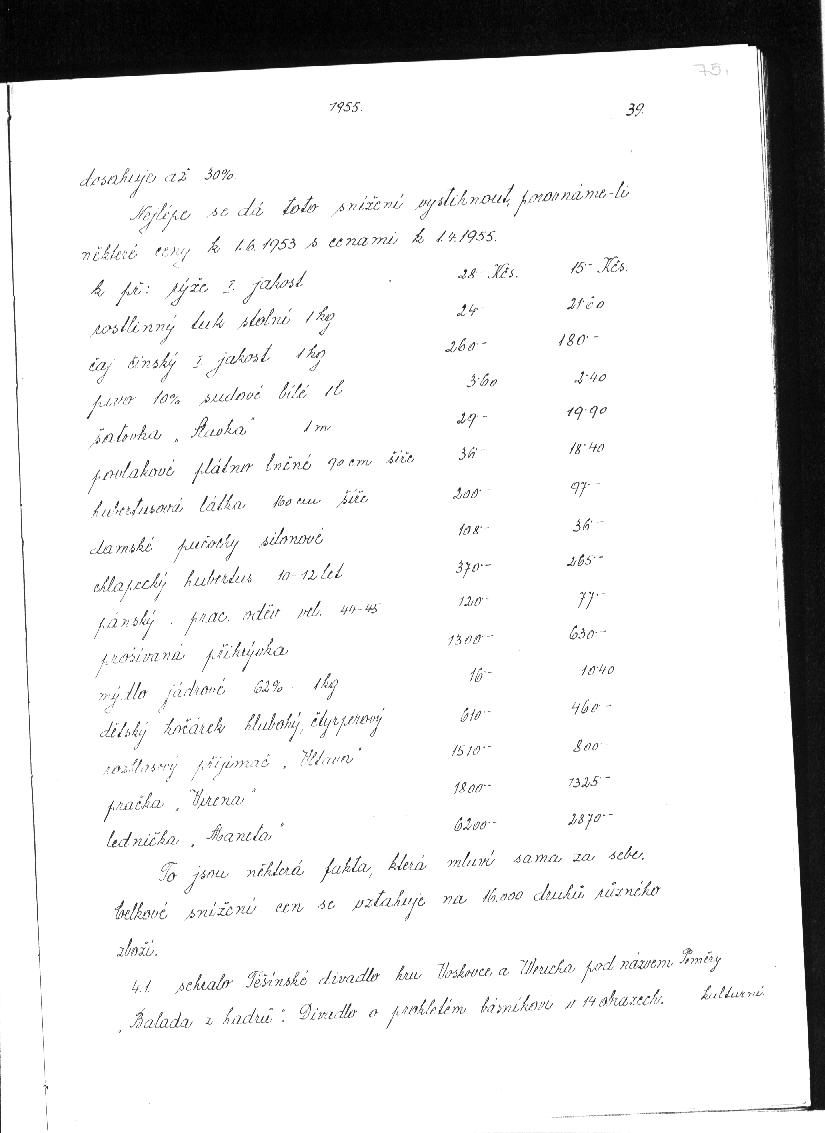 75.
1955. 39.
dosahuje až 30%
Nejlépe se dá toto snížení vystihnout, porovnáme-li
některé ceny k 1.6.1953 s cenami k 1.4.1955.
k př: rýže I. jakost 28 Kčs. 15- Kčs.
rostlinný tuk stolní 1 kg 24 21
čaj čínský I jakost 1kg 260- 180-
pivo 10% sudové bílé 1l 3·60 2·40
šatovka 1m 29- 19·90
povlakové plátno lněné 90 cm šíře 36 18·40
hubertusová látka 160 cm šíře 200- 97-
damské pučochy silonové 108- 36-
chlapecký hubertus 10-12 let 370- 265-
pánský prac. oděv vel. 44-45 120- 77-
prošívaná přikrývka 1300- 630-
mýdlo jádrové 62% 1kg 16- 10·40
dětský kočárek hluboký, čtyrperový 610- 460-
rozhlasový přijimač „Vltava" 1510- 800-
pračka „Verena" 1800- 1325-
lednička „Maneta" 6200- 2870-
To jsou některá fakta, která mluví sama za sebe.
Celkové snížení cen se vztahuje na 16.000 druhů různého
zboží.
4.1. sehralo Těšínské divadlo hru Voskovce a Wericha pod názvem Poměry
„Balada z hadrů". Divadlo o prokletém básníkovi v 14 obrazech. kulturní